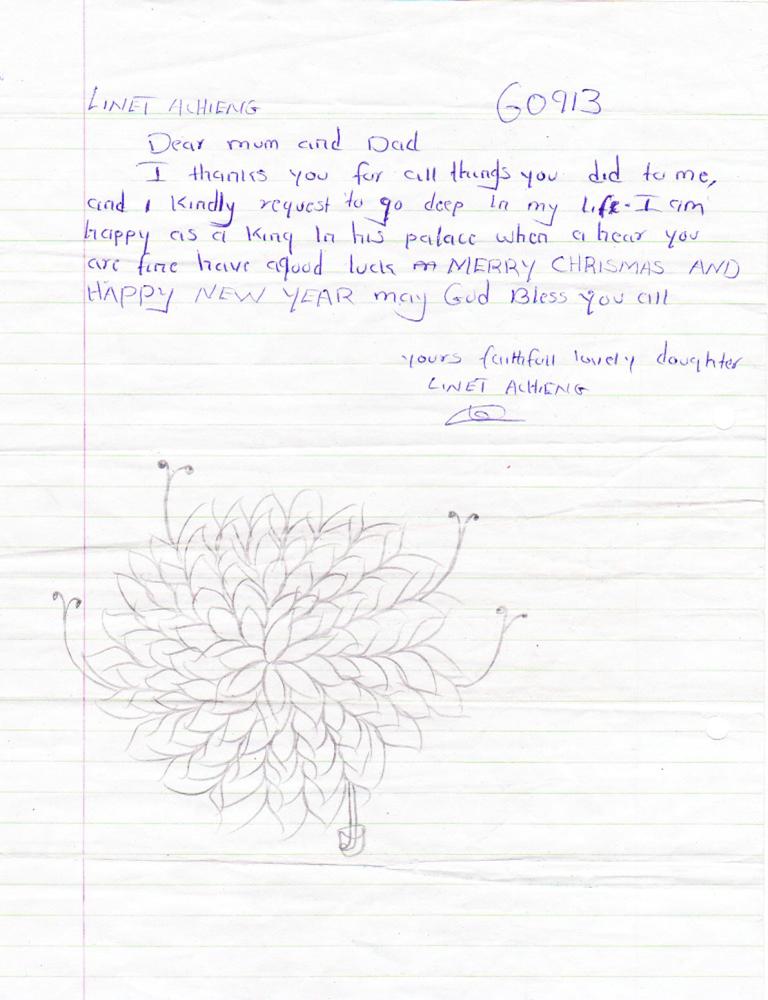 LINET ACHIENG 60913
Dear mum and Dad
I thanks you for all things you did to me,
and I kindly request to go deep in my life. I am
happy as a king In his palace when a hear you
are fine have agood luck MERRY CHRISMAS AND
HAPPY NEW YEAR may God Bless you all
yours faithfull lovely daughter
LINET ACHIENG